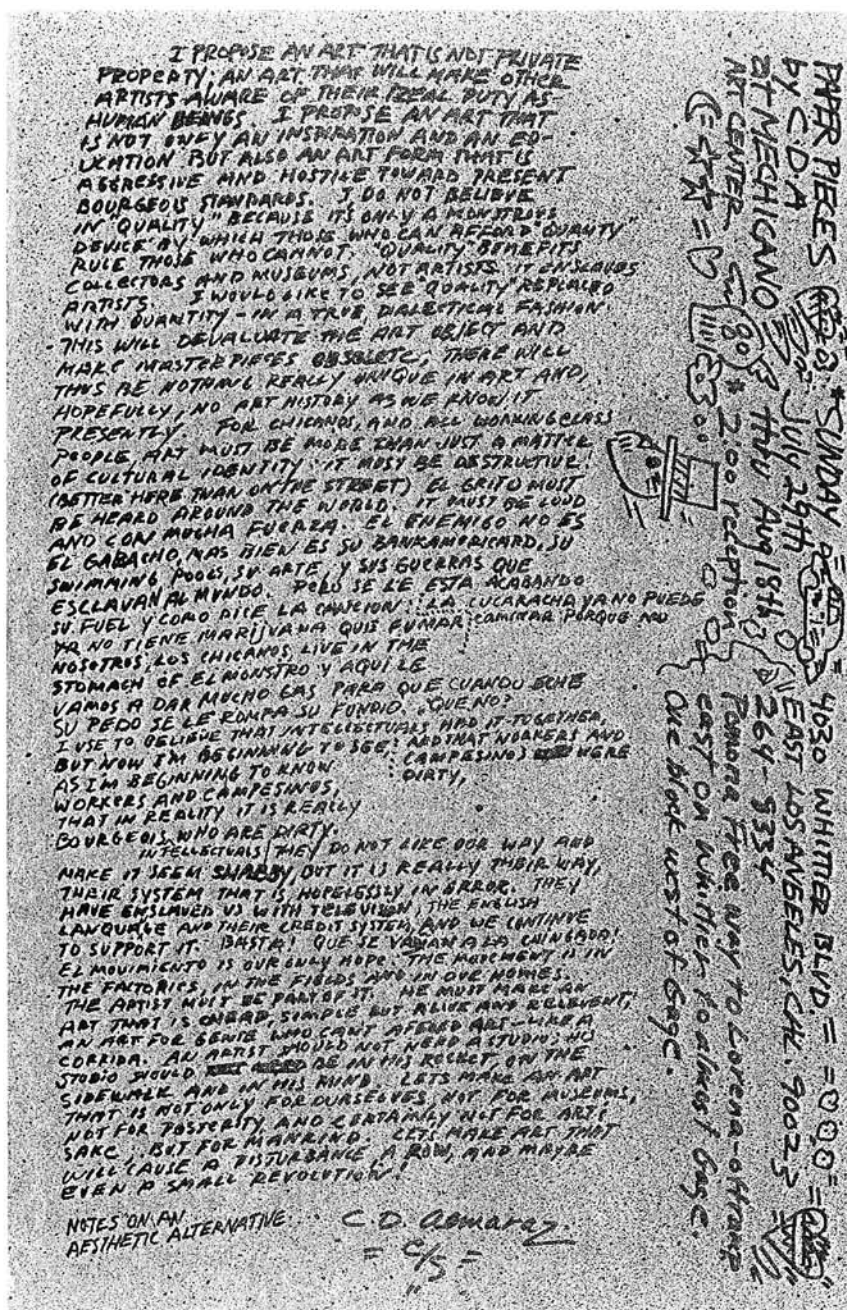 I PROPOSE AN ART THAT IS NOT PRIVATE
PROPERTY; AN ART THAT WILL MAKE OTHER
ARTISTS AWARE OF THEIR REAL DUTY AS
HUMAN BEINGS. I PROPOSE AN ART THAT
IS NOT ONLY AN INSPIRATION AND AN ED-
UCATION BUT ALSO AN ART FORM THAT IS
AGGRESSIVE AND HOSTILE TOWARD PRESENT
BOURGEOIS STANDARDS. I DO NOT BELIEVE
IN "QUALITY" BECAUSE ITS ONLY A MONSTROUS
DEVICE BY WHICH THOSE WHO CAN AFFORD "QUALITY"
RULE THOSE WHO CANNOT. "QUALITY" BENEFITS
COLLECTORS AND MUSEUMS, NOT ARTISTS. IT ENSLAVES
ARTISTS. I WOULD LIKE TO SEE "QUALITY" REPLACED
WITH QUANTITY - IN A TRUE DIALECTICAL FASHION.
THIS WILL DEVALUATE THE ART OBJECT AND
MAKE MASTERPIECES OBSOLETE; THERE WILL
THUS BE NOTHING REALLY UNIQUE IN ART AND,
HOPEFULLY, NO ART HISTORY AS WE KNOW IT
PRESENTLY. FOR CHICANOS, AND ALL WORKING CLASS
PEOPLE ART MUST BE MORE THAN JUST A MATTER
OF CULTURAL IDENTITY: IT MUST BE DESTRUCTIVE!
(BETTER HERE THAN ON THE STREET) EL GRITO MUST
BE HEARD AROUND THE WORLD. IT MUST BE LOUD
AND CON MUCHA FUERZA. EL ENEMIGO NO ES
EL GABACHO, MAS BIEN ES SU BANKAMERICARD, SU
SWIMMING POOLS, SU ARTE, Y SUS GUERRAS QUE
ESCLAVAN AL MUNDO. PERO SE LE ESTA ACABANDO
SU FUEL Y COMO DICE LA CANCION: LA CUCARACHA YA NO PUEDE
CAMINAR PORQUE NO
YA NO TIENE MARIJUANA QUE FUMAR
NOSOTROS, LOS CHICANOS, LIVE IN THE
STOMACH OF EL MONSTRO Y AQUI LE
VAMOS A DAR MUCHO GAS PARA QUE CUANDO ECHE
SU PEDO SE LE ROMPA SU FUNDIO. QUE NO?
I USE TO BELIEVE THAT INTELLECTUALS HAD IT TOGETHER,
AND THAT WORKERS AND
CAMPESINOS WERE
DIRTY,
BUT NOW I'M BEGINNING TO SEE,
AS I'M BEGINNING TO KNOW
WORKERS AND CAMPESINOS,
THAT IN REALITY IT IS REALLY
BOURGEOIS INTELLECTUALS WHO ARE DIRTY.
THEY DO NOT LIKE OUR WAY AND
MAKE IT SEEM SHABBY, BUT IT IS REALLY THEIR WAY,
THEIR SYSTEM THAT IS HOPELESSLY IN ERROR. THEY
HAVE ENSLAVED US WITH TELEVISION, THE ENGLISH
LANGUAGE AND THEIR CREDIT SYSTEM, AND WE CONTINUE
TO SUPPORT IT. BASTA! QUE SE VAYAN A LA CHINGADA!
EL MOVIMIENTO IS OUR ONLY HOPE. THE MOVEMENT IS IN
THE FACTORIES, IN THE FIELDS AND IN OUR HOMES.
THE ARTIST MUST BE PART OF IT. HE MUST MAKE AN
ART THAT IS CHEAP, SIMPLE BUT ALIVE AND RELEVENT,
AN ART FOR GENTE WHO CANT AFFORD ART - LIKE A
CORRIDA. AN ARTIST SHOULD NOT NEED A STUDIO; HIS
STUDIO SHOULD BE IN HIS POCKET, ON THE
SIDEWALK AND IN HIS MIND. LETS MAKE AN ART
THAT IS NOT ONLY FOR OURSELVES, NOT FOR MUSEUMS,
NOT FOR POSTERITY, AND CERTAINLY NOT FOR ARTS
SAKE, BUT FOR MANKIND. LETS MAKE ART THAT
WILL CAUSE A DISTURBANCE, A ROW, AND MAYBE
EVEN A SMALL REVOLUTION!
NOTES ON AN
AESTHETIC ALTERNATIVE
C.D. Almaraz
= C/S =
PAPER PIECES * SUNDAY 4030 WHITTIER BLVD.
by C D A July 29th EAST LOS ANGELES, CAL. 90023
at MECHICANO thru Aug 18th 264-9334
ART CENTER * 2:00 reception Pomona Freeway to Lorena-offramp
east on Whittier to almost Gage.
One block west of Gage.